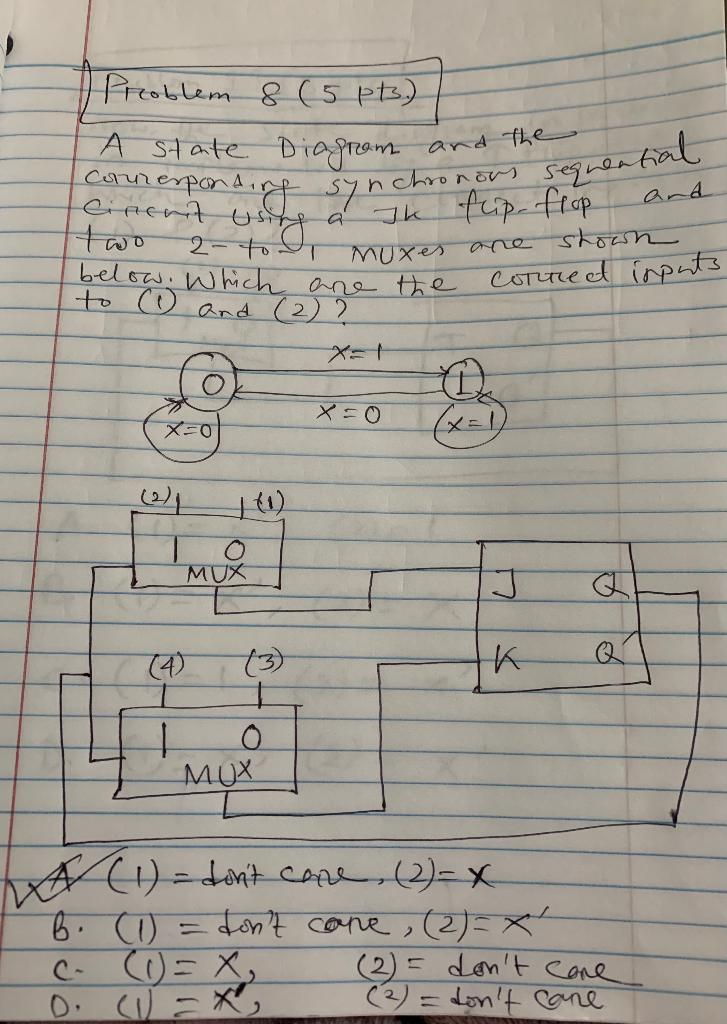 Problem 8 (5 pts.)
A state Diagram and the
corresponding synchronous sequential
circuit using a JK flip-flop and
two 2-to-1 MUXes are shown
below. Which are the correct inputs
to (1) and (2)?
X=1
0 1
X=0
X=0 X=1
(2) (1)
1 0
MUX
J Q
K Q'
(4) (3)
1 0
MUX
A (1) = don't care, (2)= X
B. (1) = don't care, (2)= X'
C. (1)= X, (2)= don't care
D. (1) = X', (2) = don't care